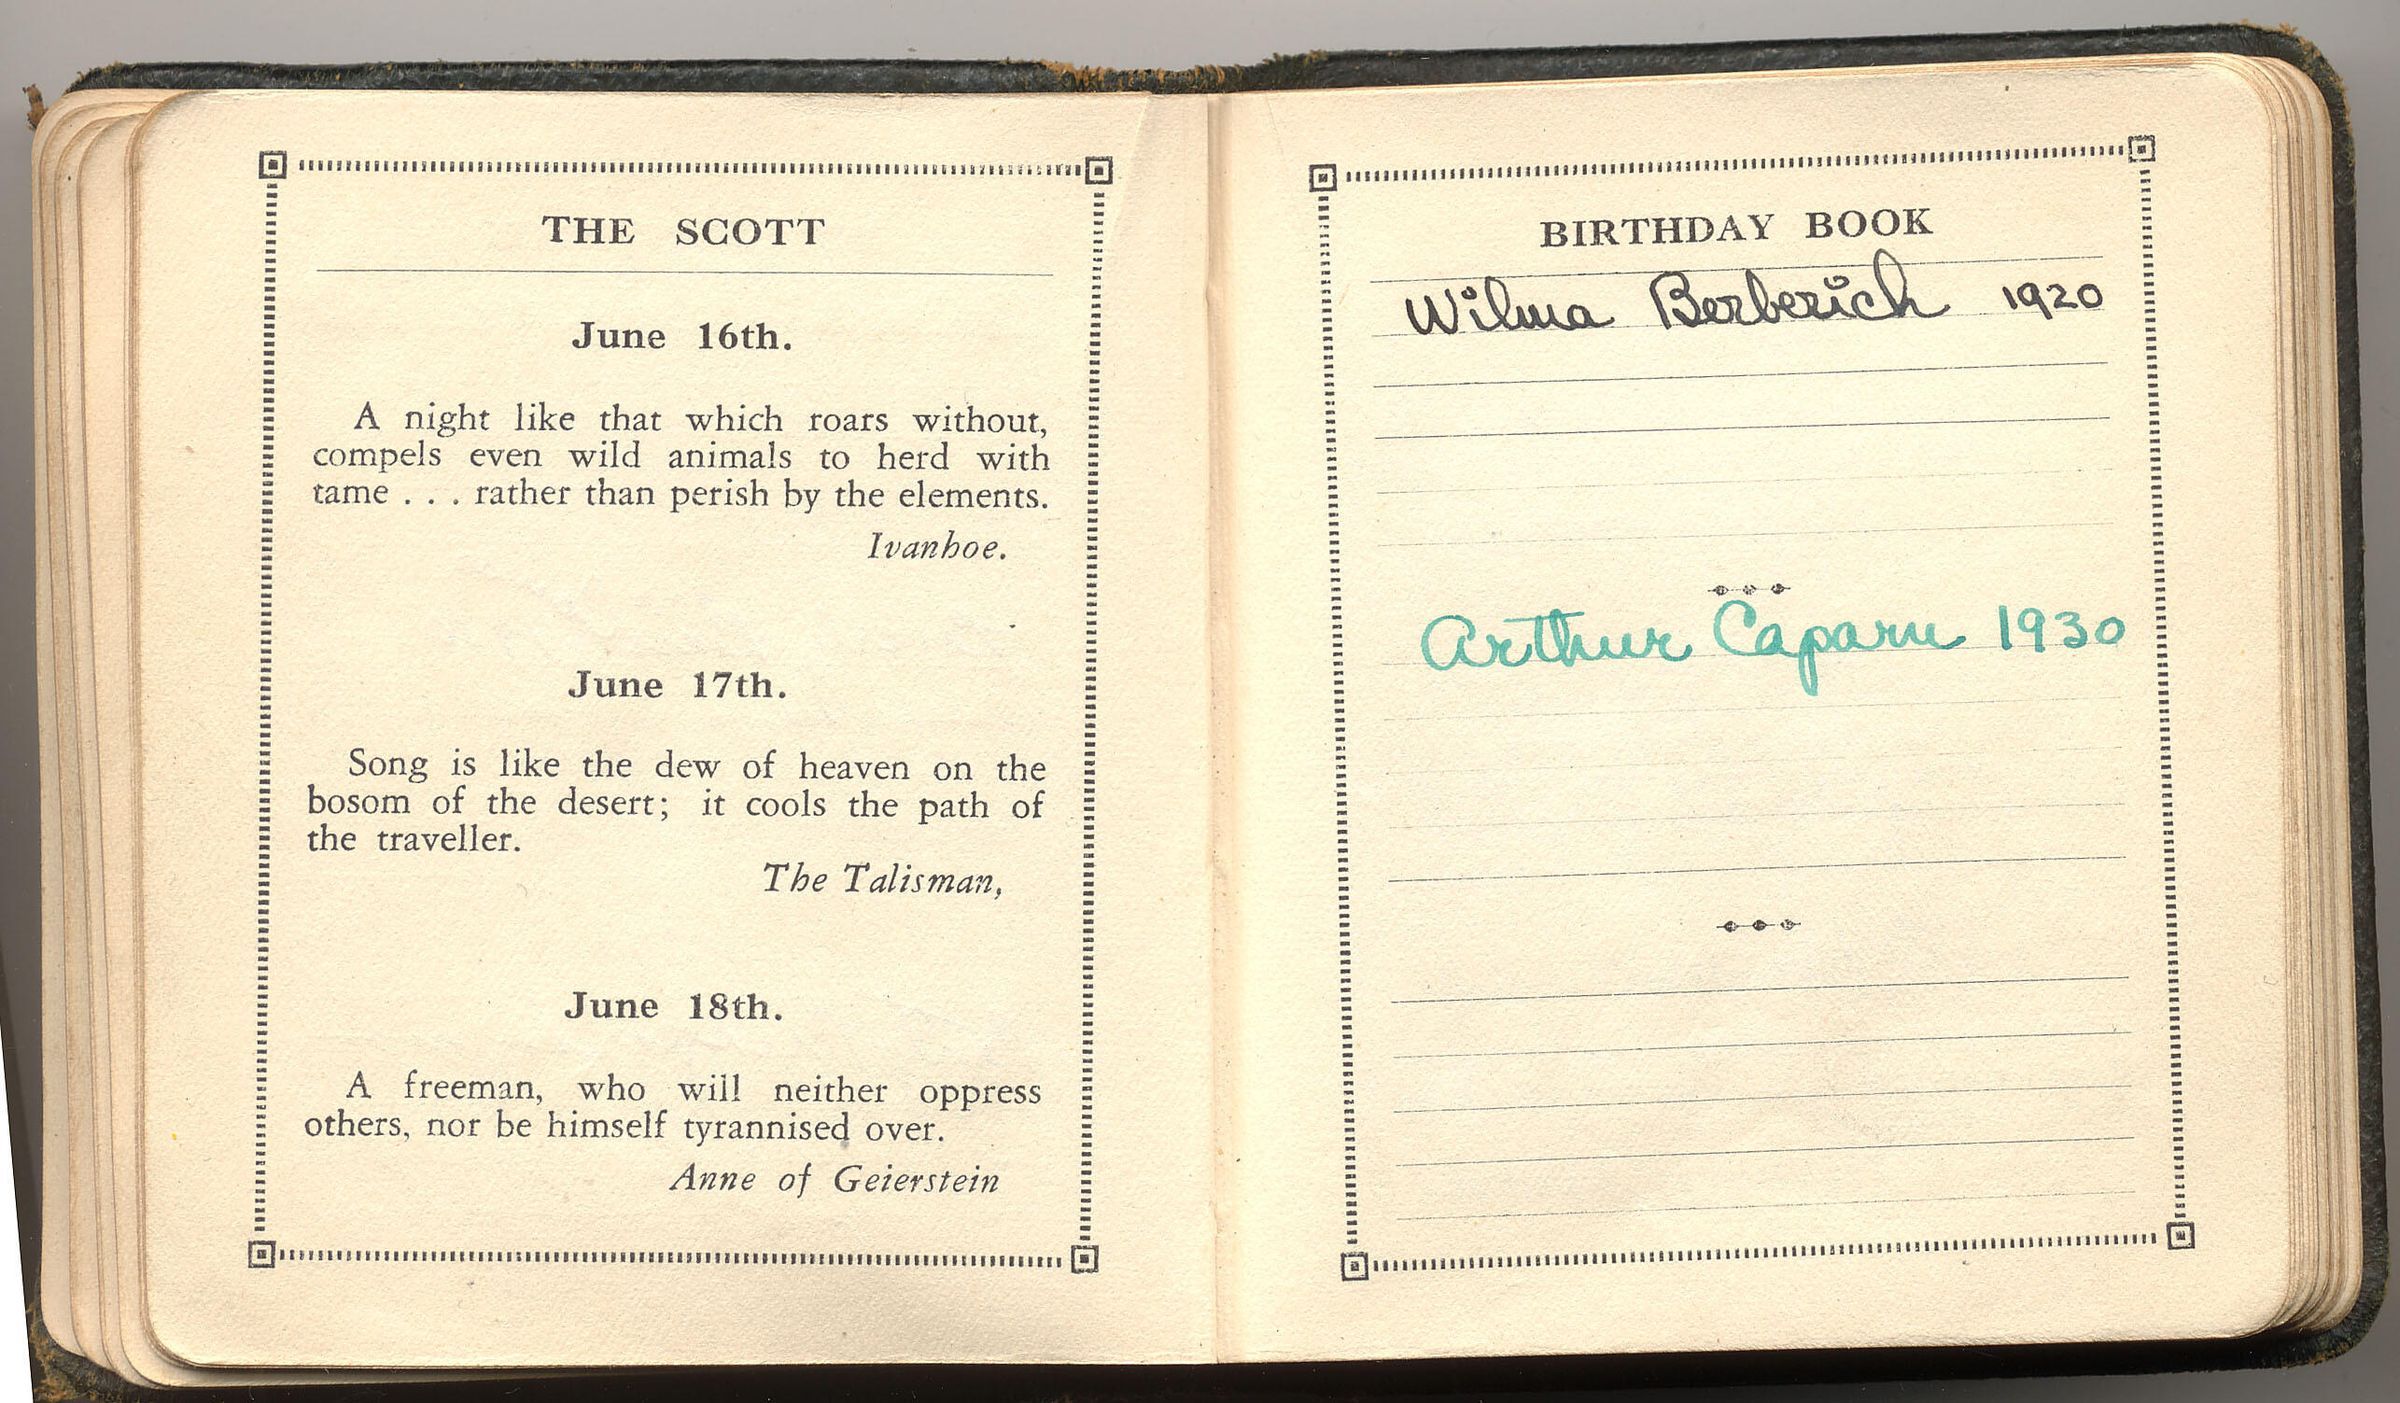 THE SCOTT
June 16th.
A night like that which roars without,
compels even wild animals to herd with
tame . . . rather than perish by the elements.
Ivanhoe.
June 17th.
Song is like the dew of heaven on the
bosom of the desert; it cools the path of
the traveller.
The Talisman,
June 18th.
A freeman, who will neither oppress
others, nor be himself tyrannised over.
Anne of Geierstein
BIRTHDAY BOOK
Wilma Berberich 1920
Arthur Caparn 1930